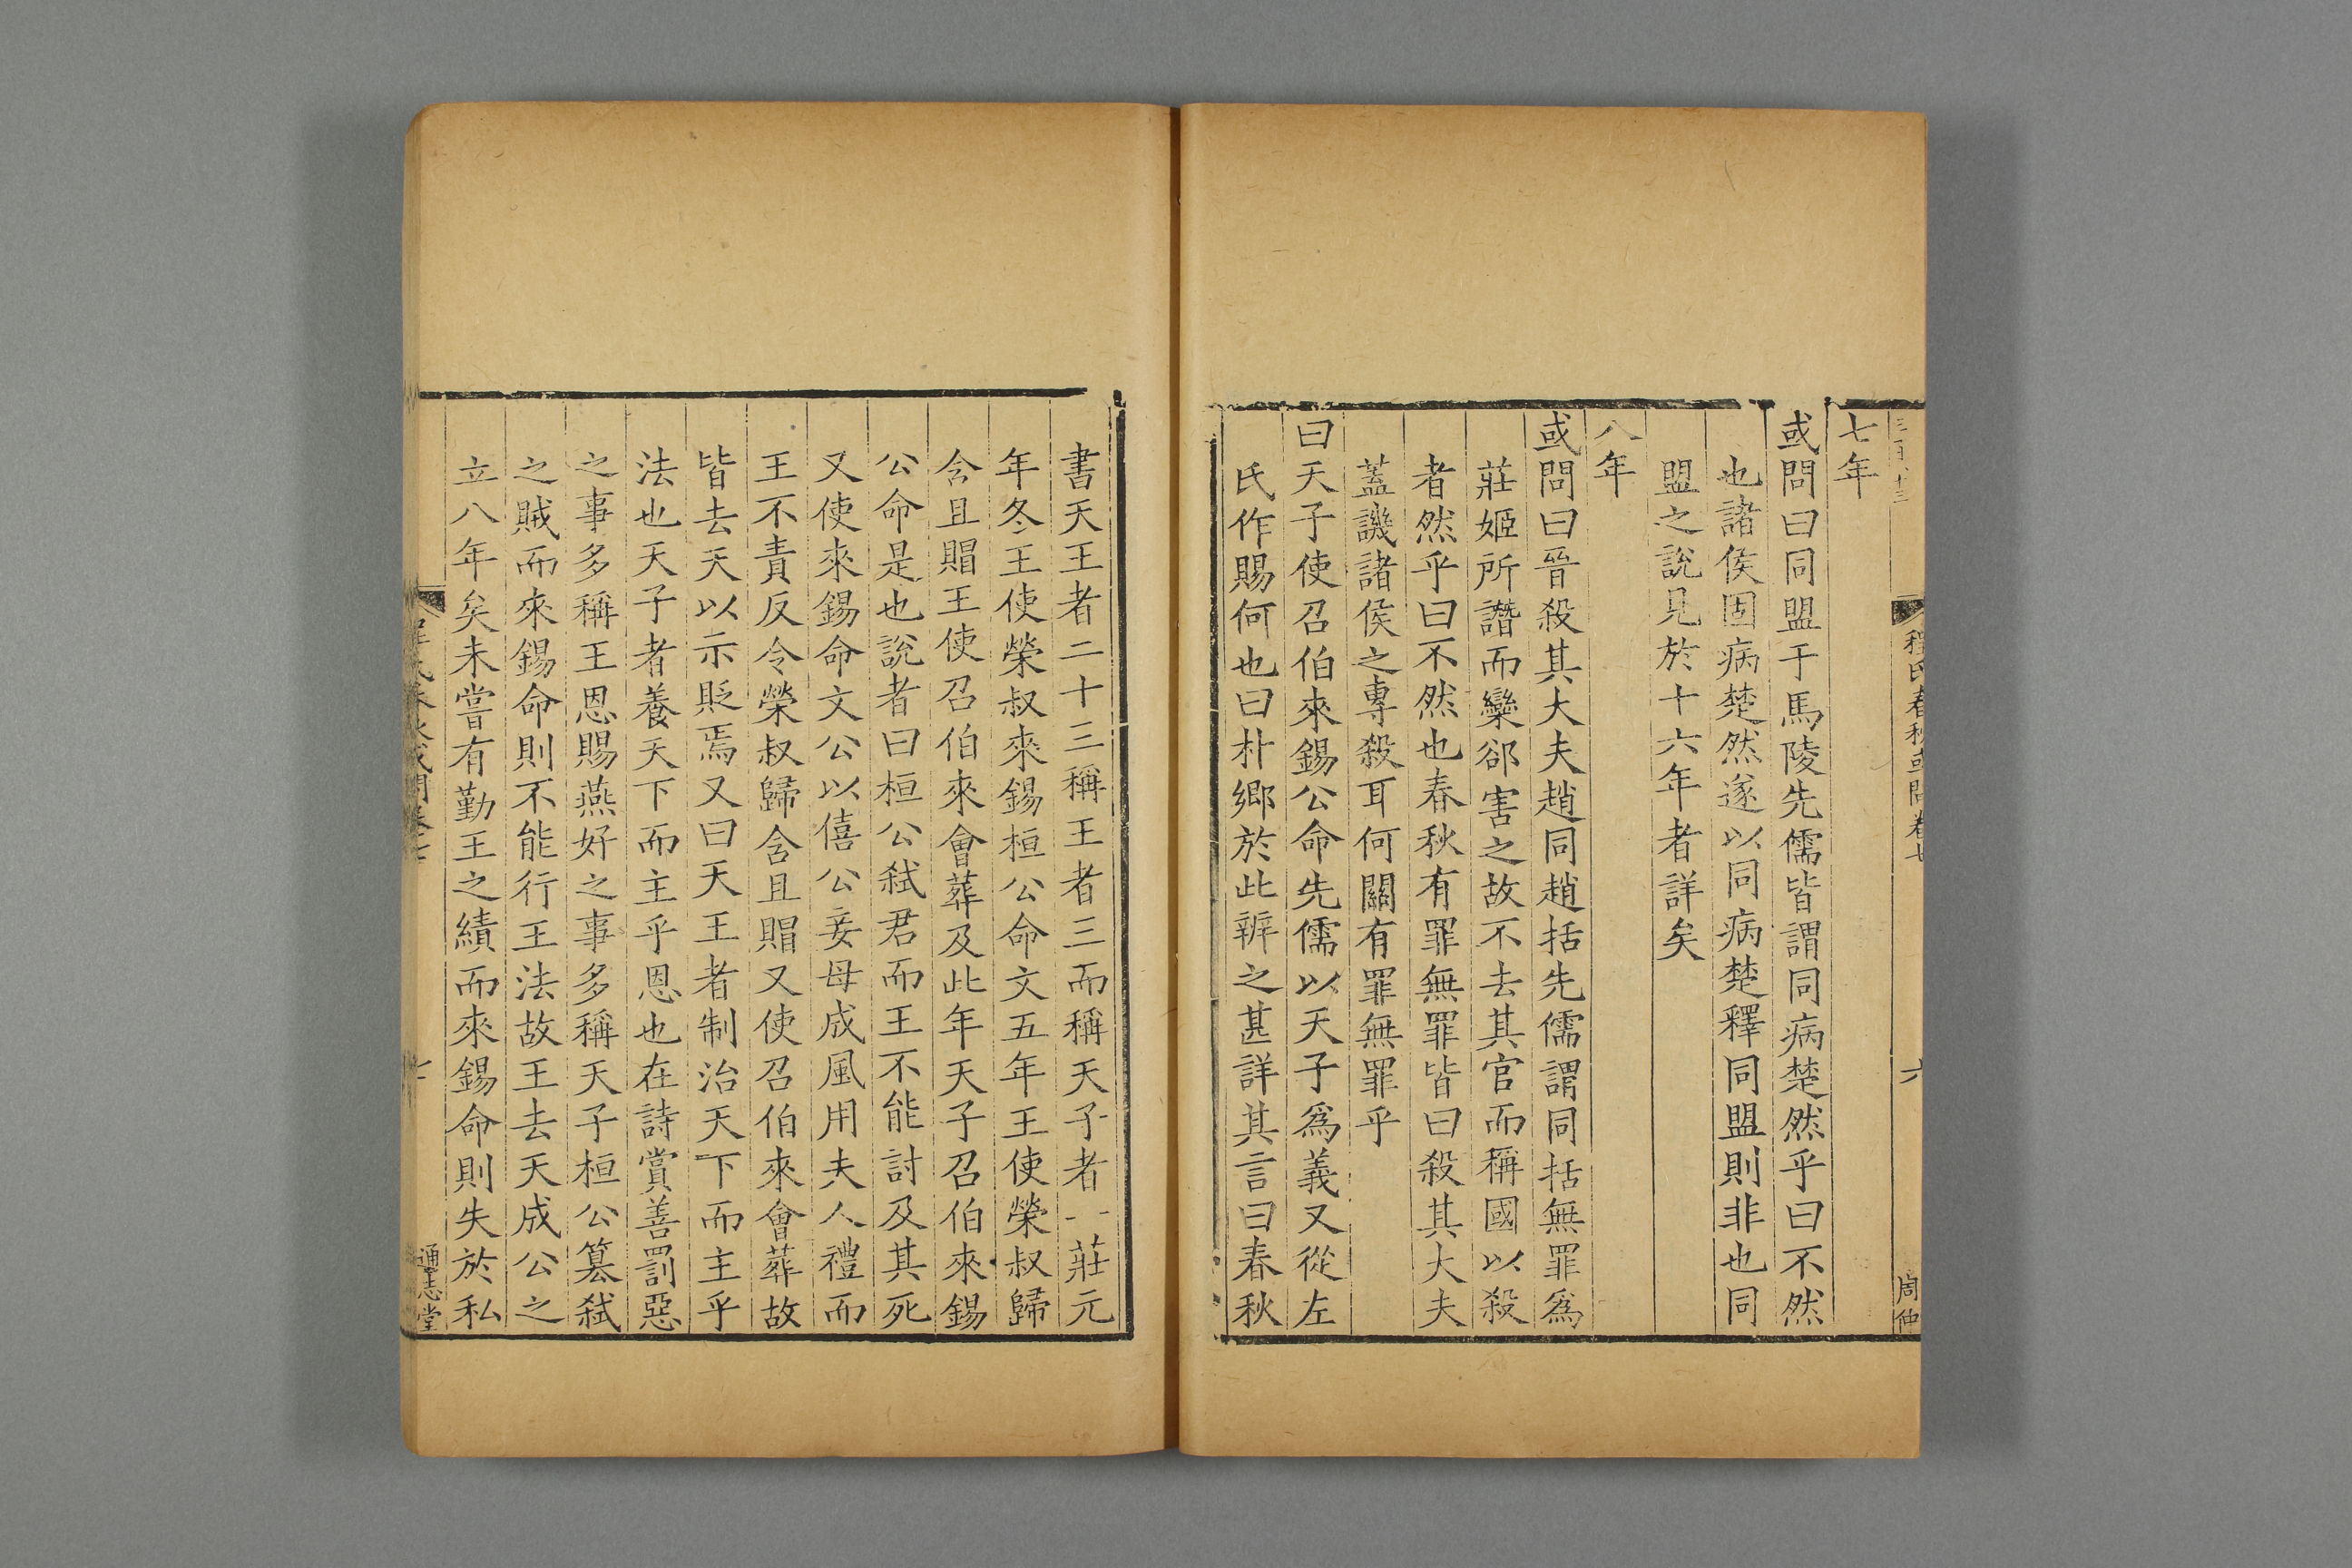 程氏春秋或問卷七
六
周仲
七年
或問曰同盟于馬陵先儒皆謂同病楚然乎曰不然
也諸侯固病楚然遂以同病楚釋同盟則非也同
盟之說見於十六年者詳矣
八年
或問曰晉殺其大夫趙同趙括先儒謂同括無罪爲
莊姬所譖而欒郤害之故不去其官而稱國以殺
者然乎曰不然也春秋有罪無罪皆曰殺其大夫
蓋譏諸侯之專殺耳何關有罪無罪乎
曰天子使召伯來錫公命先儒以天子爲義又從左
氏作賜何也曰朴鄉於此辨之甚詳其言曰春秋
書天王者二十三稱王者三而稱天子者一莊元
年冬王使榮叔來錫桓公命文五年王使榮叔歸
含且賵王使召伯來會葬及此年天子召伯來錫
公命是也說者曰桓公弒君而王不能討及其死
又使來錫命文公以僖公妾母成風用夫人禮而
王不責反令榮叔歸含且賵又使召伯來會葬故
皆去天以示貶焉又曰天王者制治天下而主乎
法也天子者養天下而主乎恩也在詩賞善罰惡
之事多稱王恩賜燕好之事多稱天子桓公篡弒
之賊而來錫命則不能行王法故王去天成公之
立八年矣未嘗有勤王之績而來錫命則失於私
程氏春秋或問卷七
七
通志堂